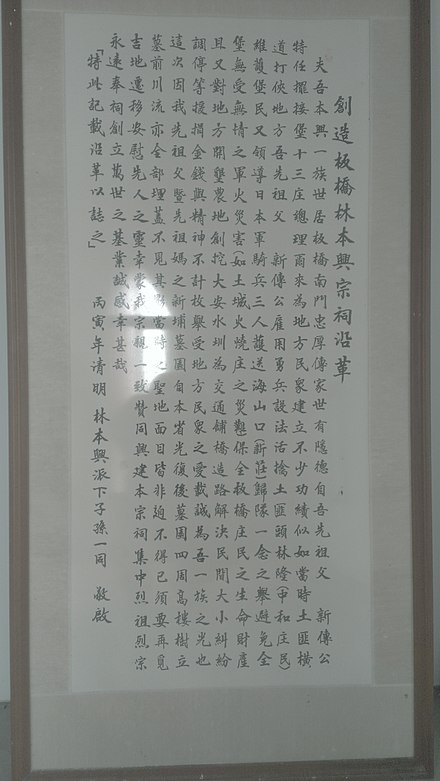 創造板橋林本興宗祠沿革
夫吾本興一族世居板橋南門忠厚傳家世有隱德自吾先祖父 新傳公
特任擺接堡十三庄總理爾來為地方民眾建立不少功績似如當時土匪橫
道打俠地方吾先祖父 新傳公雇用勇兵設法活擒土匪頭林隆(中和庄民)
維護堡民又領導日本軍騎兵三人護送海山口(新莊歸隊一念之舉避免全
堡無受無情之軍火災害(如土城火燒庄之災難保全板橋庄民之生命財產
且又對地方開墾農地創挖大安水圳為交通鋪橋造路解決民間大小糾紛
調停等援捐金錢與精神不計枚舉受地方民眾之愛戴誠為吾一族之光也
這次因我先祖父暨先祖媽之新埔墓園自本省光復後墓園四周高樓樹立
墓前川流亦全部埋蓋不見其當時之聖地面目皆非迫不得已須要再覓
吉地遷移安慰先人之靈幸蒙我宗親一致贊同興建本宗祠集中烈祖烈宗
永遠奉祠創立萬世之基業誠感幸甚哉
「特此記載沿革以誌之」 丙寅年清明 林本興派下子孫一同 敬啟